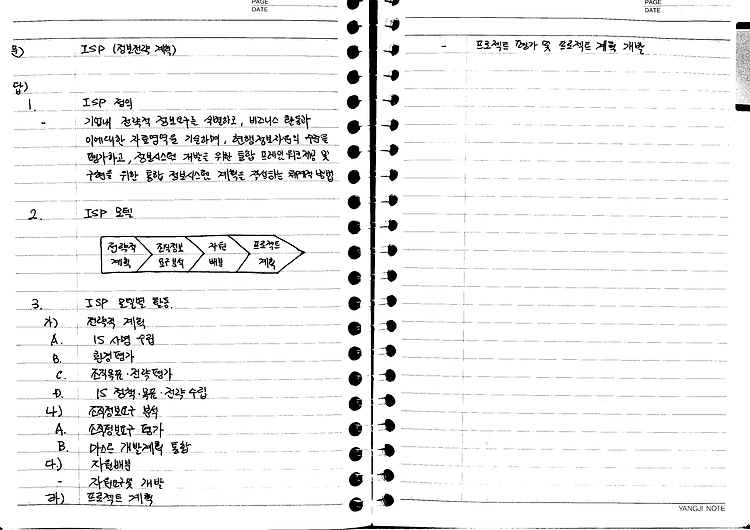 PAGE
DATE
문) ISP (정보전략 계획)
답)
1. ISP 정의
- 기업내 전략적 정보요구를 식별하고, 비즈니스 활동과
이에대한 자료영역을 기술하며, 현행정보시스템의 수준을
평가하고, 정보시스템 개발을 위한 통합 프레임워크제공 및
구현을 위한 통합 정보시스템 계획을 작성하는 체계적 방법
2. ISP 모델
전략적 계획
조직정보 요구분석
자원 배분
프로젝트 계획
3. ISP 모델별 활동.
가) 전략적 계획
A. IS 사명 수립
B. 환경평가
C. 조직목표·전략평가
D. IS 정책·목표·전략 수립
나) 조직정보요구 분석
A. 조직정보요구 평가
B. 마스터 개발계획 통합
다.) 자원배분
- 자원요구및 개발
라) 프로젝트 계획
PAGE
DATE
- 프로젝트 평가 및 프로젝트 계획 개발
YANGJI NOTE